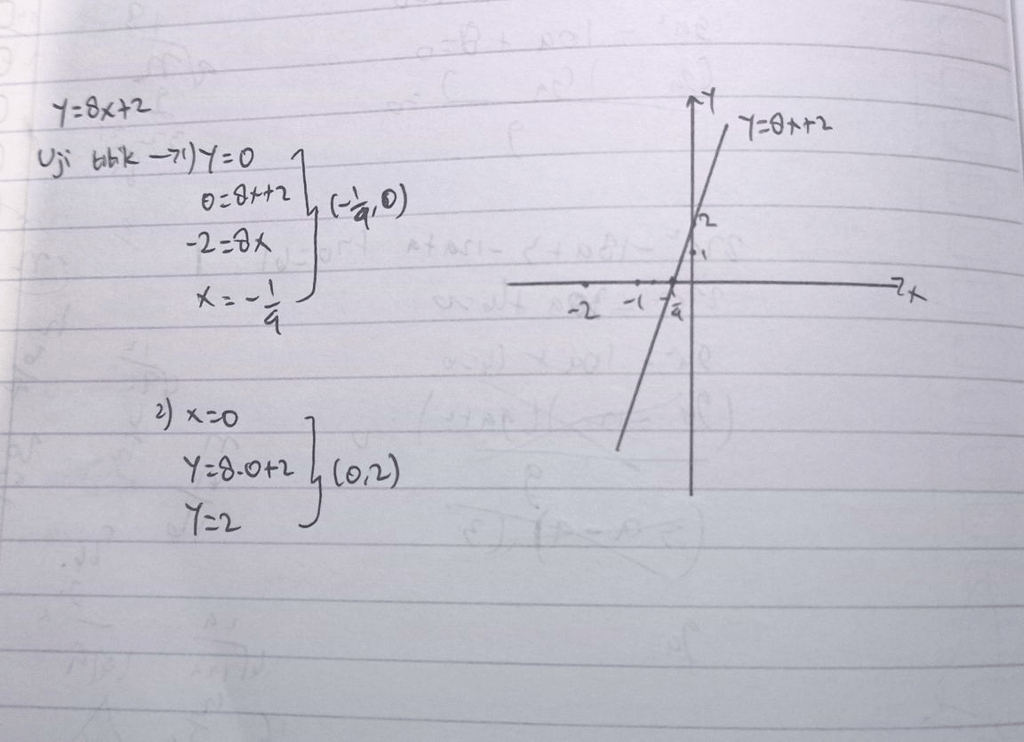 y=8x+2
Uji titik →1) y=0
0=8x+2
-2=8x
x = -1/4
(-1/4, 0)
2) x=0
y=8.0+2
y=2
(0,2)
y
y=8x+2
2
1
-2 -1 -1/4 x